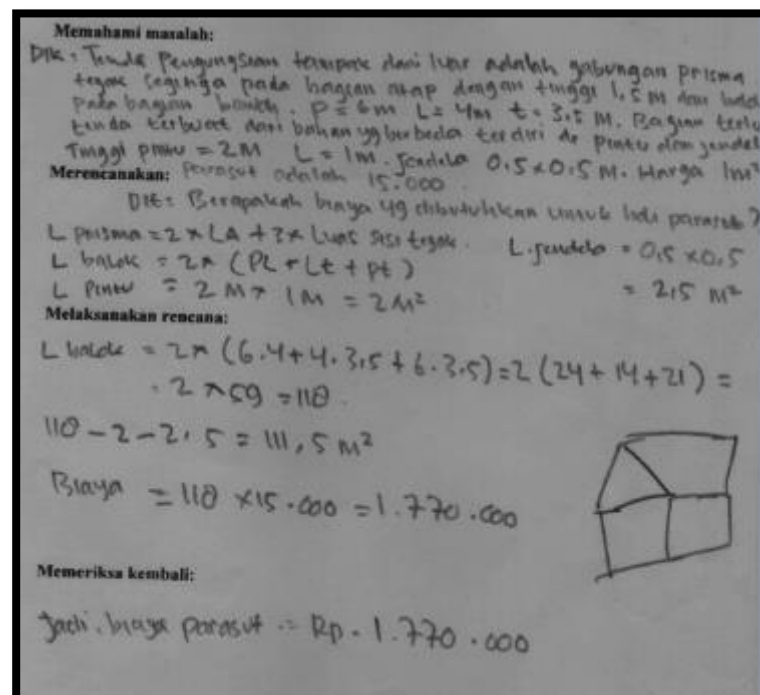 Memahami masalah:
Dik: Tenda Pengungsian tampak dari luar adalah gabungan prisma
tegak segitiga pada bagian atap dengan tinggi 1,5 M dan
pada bagian bawah. P = 6m L = 4m t = 3.5 M. Bagian
tenda terbuat dari bahan yg berbeda terdiri dr pintu dan jendel
Tinggi pintu = 2M L = 1m. Jendela 0.5 x 0.5 M. Harga 1m²
Merencanakan: Parasut adalah 15.000
Dit: Berapakah biaya yg dibutuhkan untuk parasut?
L prisma = 2 x LA + 3 x Luas sisi tegak. L. jendela = 0,5 x 0.5
L balok = 2 x (PL + Lt + pt) = 2,5 M²
L Pintu = 2 M x 1M = 2M²
Melaksanakan rencana:
L balok = 2 x (6.4 + 4. 3,5 + 6. 3.5) = 2 (24 + 14 + 21) =
= 2 x 59 = 118.
118 - 2 - 2,5 = 111,5 M²
Biaya = 118 x 15.000 = 1.770.000
Memeriksa kembali:
Jadi. biaya parasut = Rp. 1.770.000